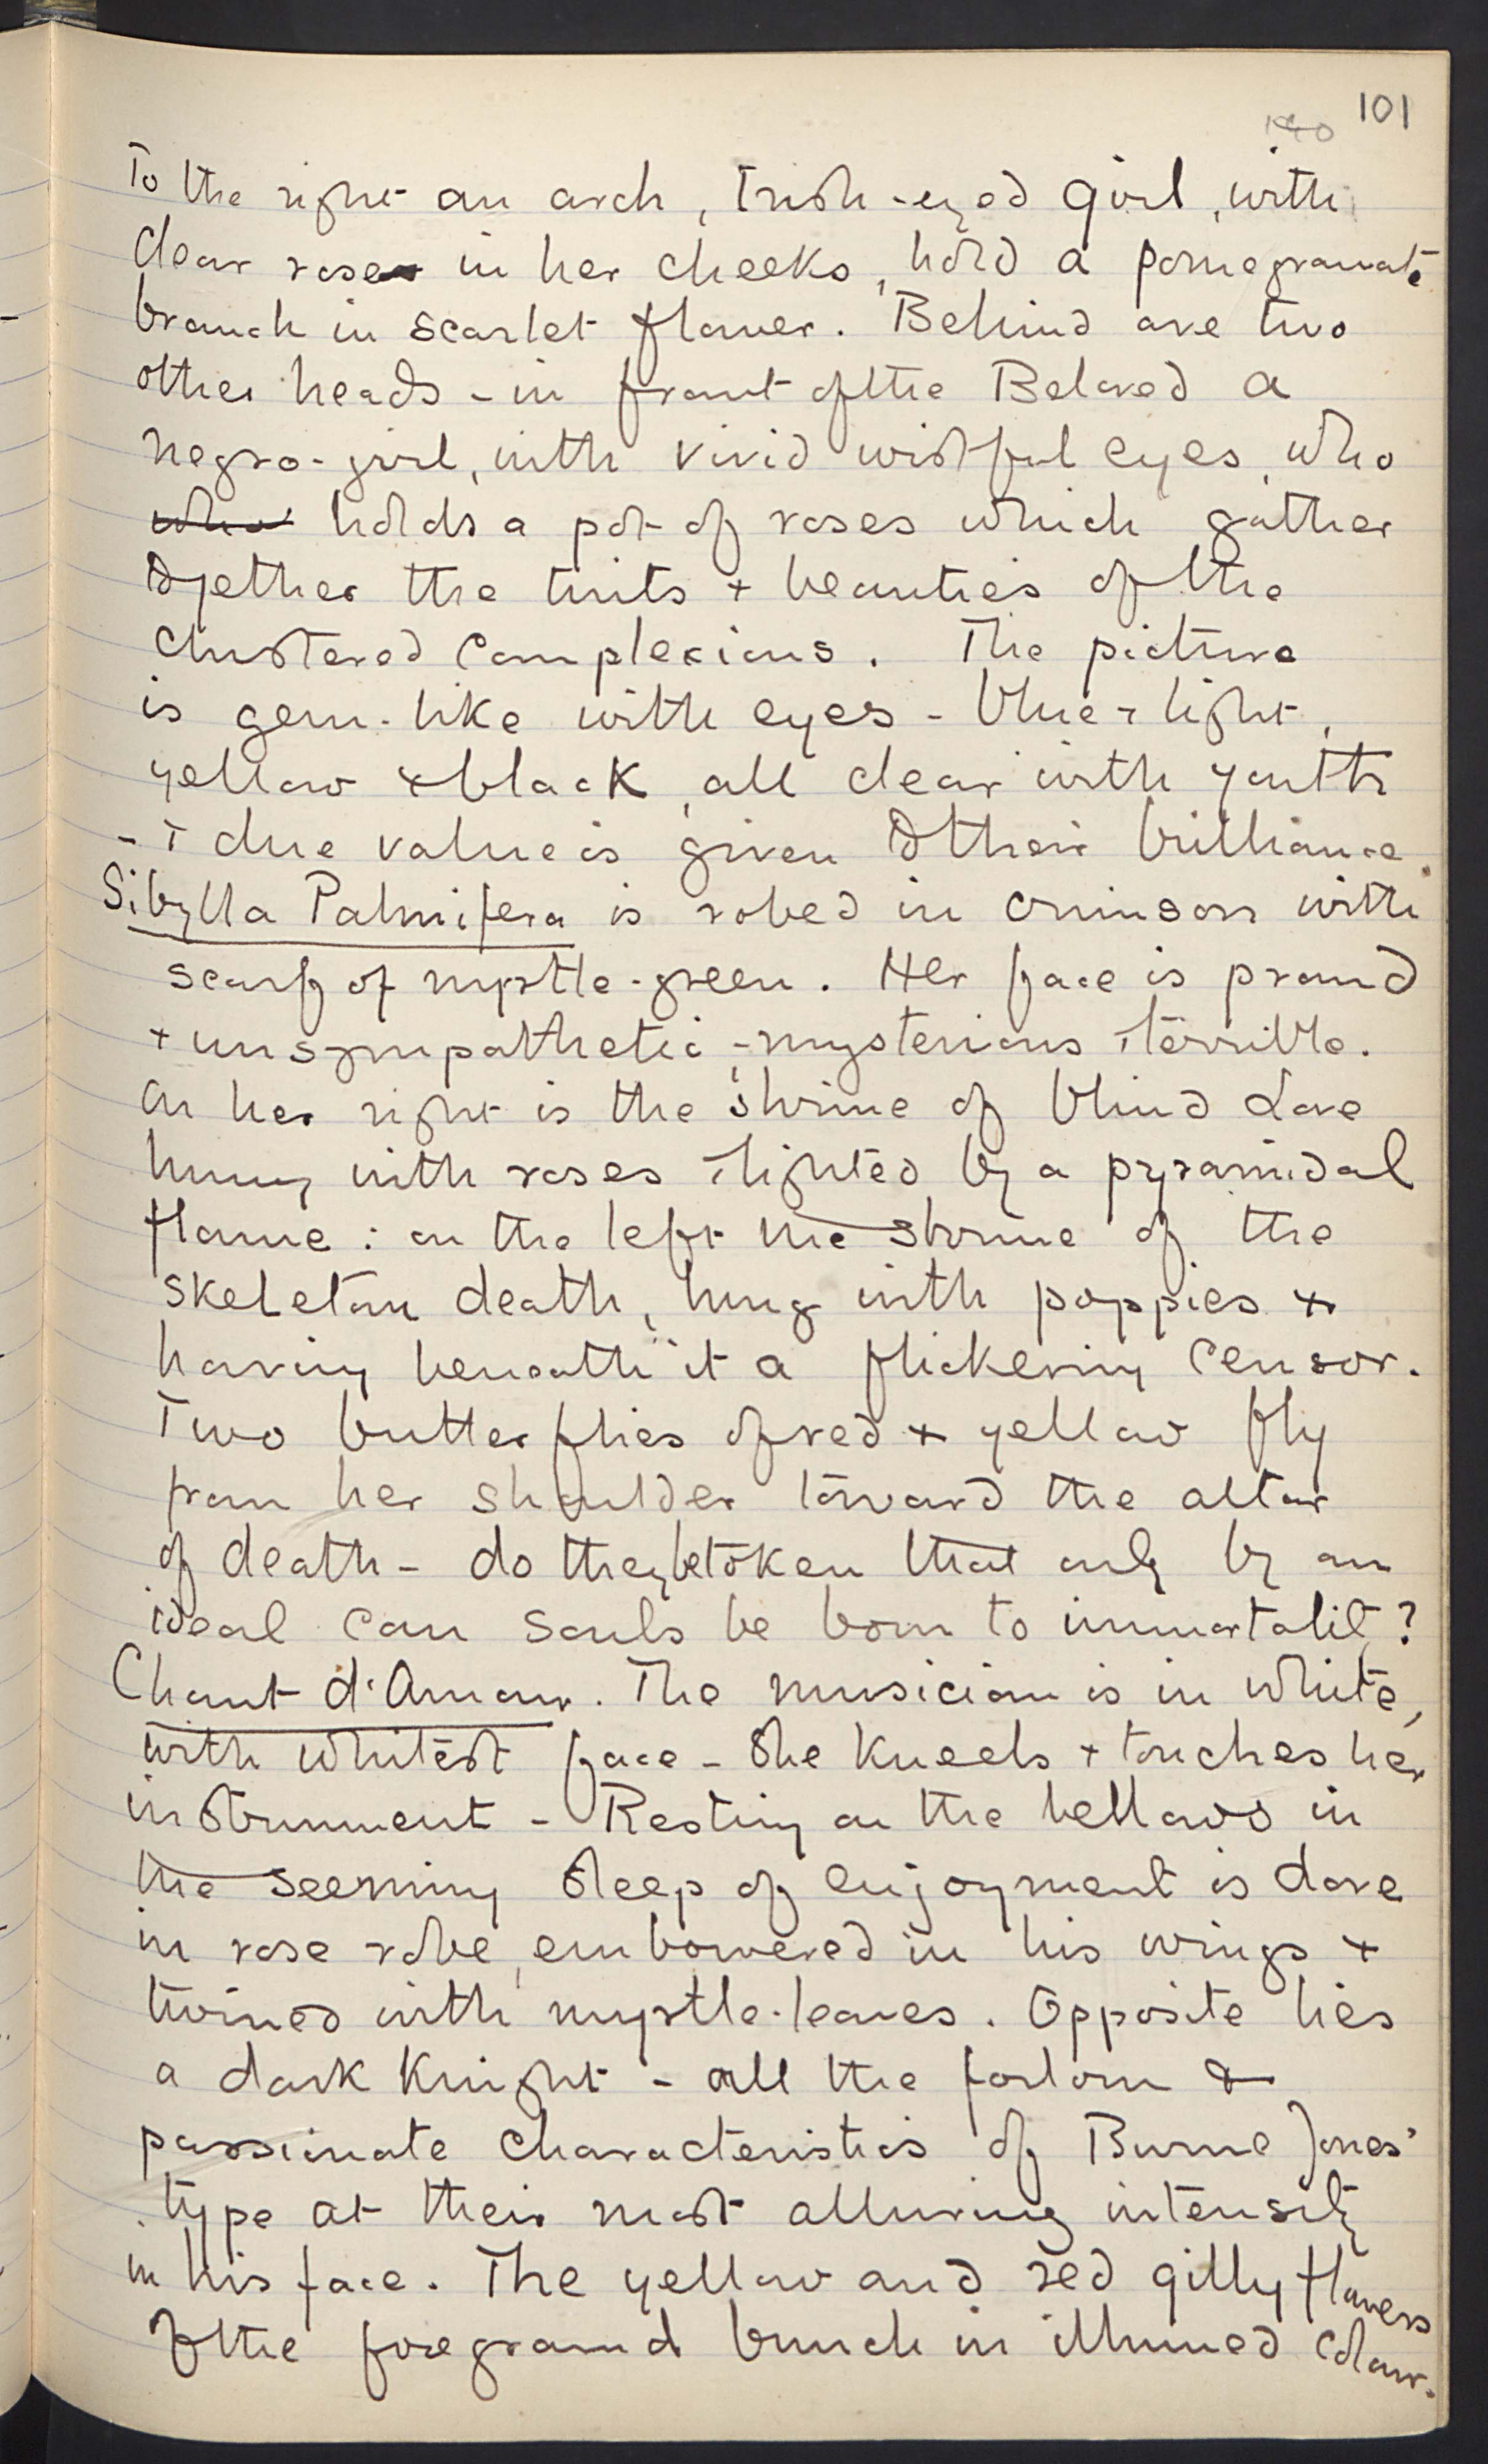 101
To the right an arch, Irish-eyed girl, with
clear rose in her cheeks, hold a pomegranate
branch in scarlet flower. Behind are two
other heads - in front of the Beloved a
negro-girl, with vivid wistful eyes, who
who holds a pot of roses which gather
together the tints + beauties of the
clustered complexions. The picture
is gem-like with eyes - blue + light,
yellow + black, all clear with youth
- + due value is given to their brilliance.
Sibylla Palmifera is robed in crimson with
scarf of myrtle-green. Her face is proud
+ unsympathetic - mysterious + terrible.
On her right is the shrine of blind Love
hung with roses + lighted by a pyramidal
flame: on the left the shrine of the
skeleton death, hung with poppies +
having beneath it a flickering censor.
Two butterflies of red + yellow fly
from her shoulder toward the altar
of death - do they betoken that only by an
ideal can souls be born to immortality?
Chant d'Amour. The musician is in white,
with whitest face - she kneels + touches her
instrument - Resting on the bellows in
the seeming sleep of enjoyment is Love
in rose robe, embowered in his wings +
twined with myrtle-leaves. Opposite lies
a dark Knight - all the forlorn &
passionate characteristics of Burne Jones'
type at their most alluring intensity
in his face. The yellow and red gilly flowers
of the foreground bunch in illumed colour.